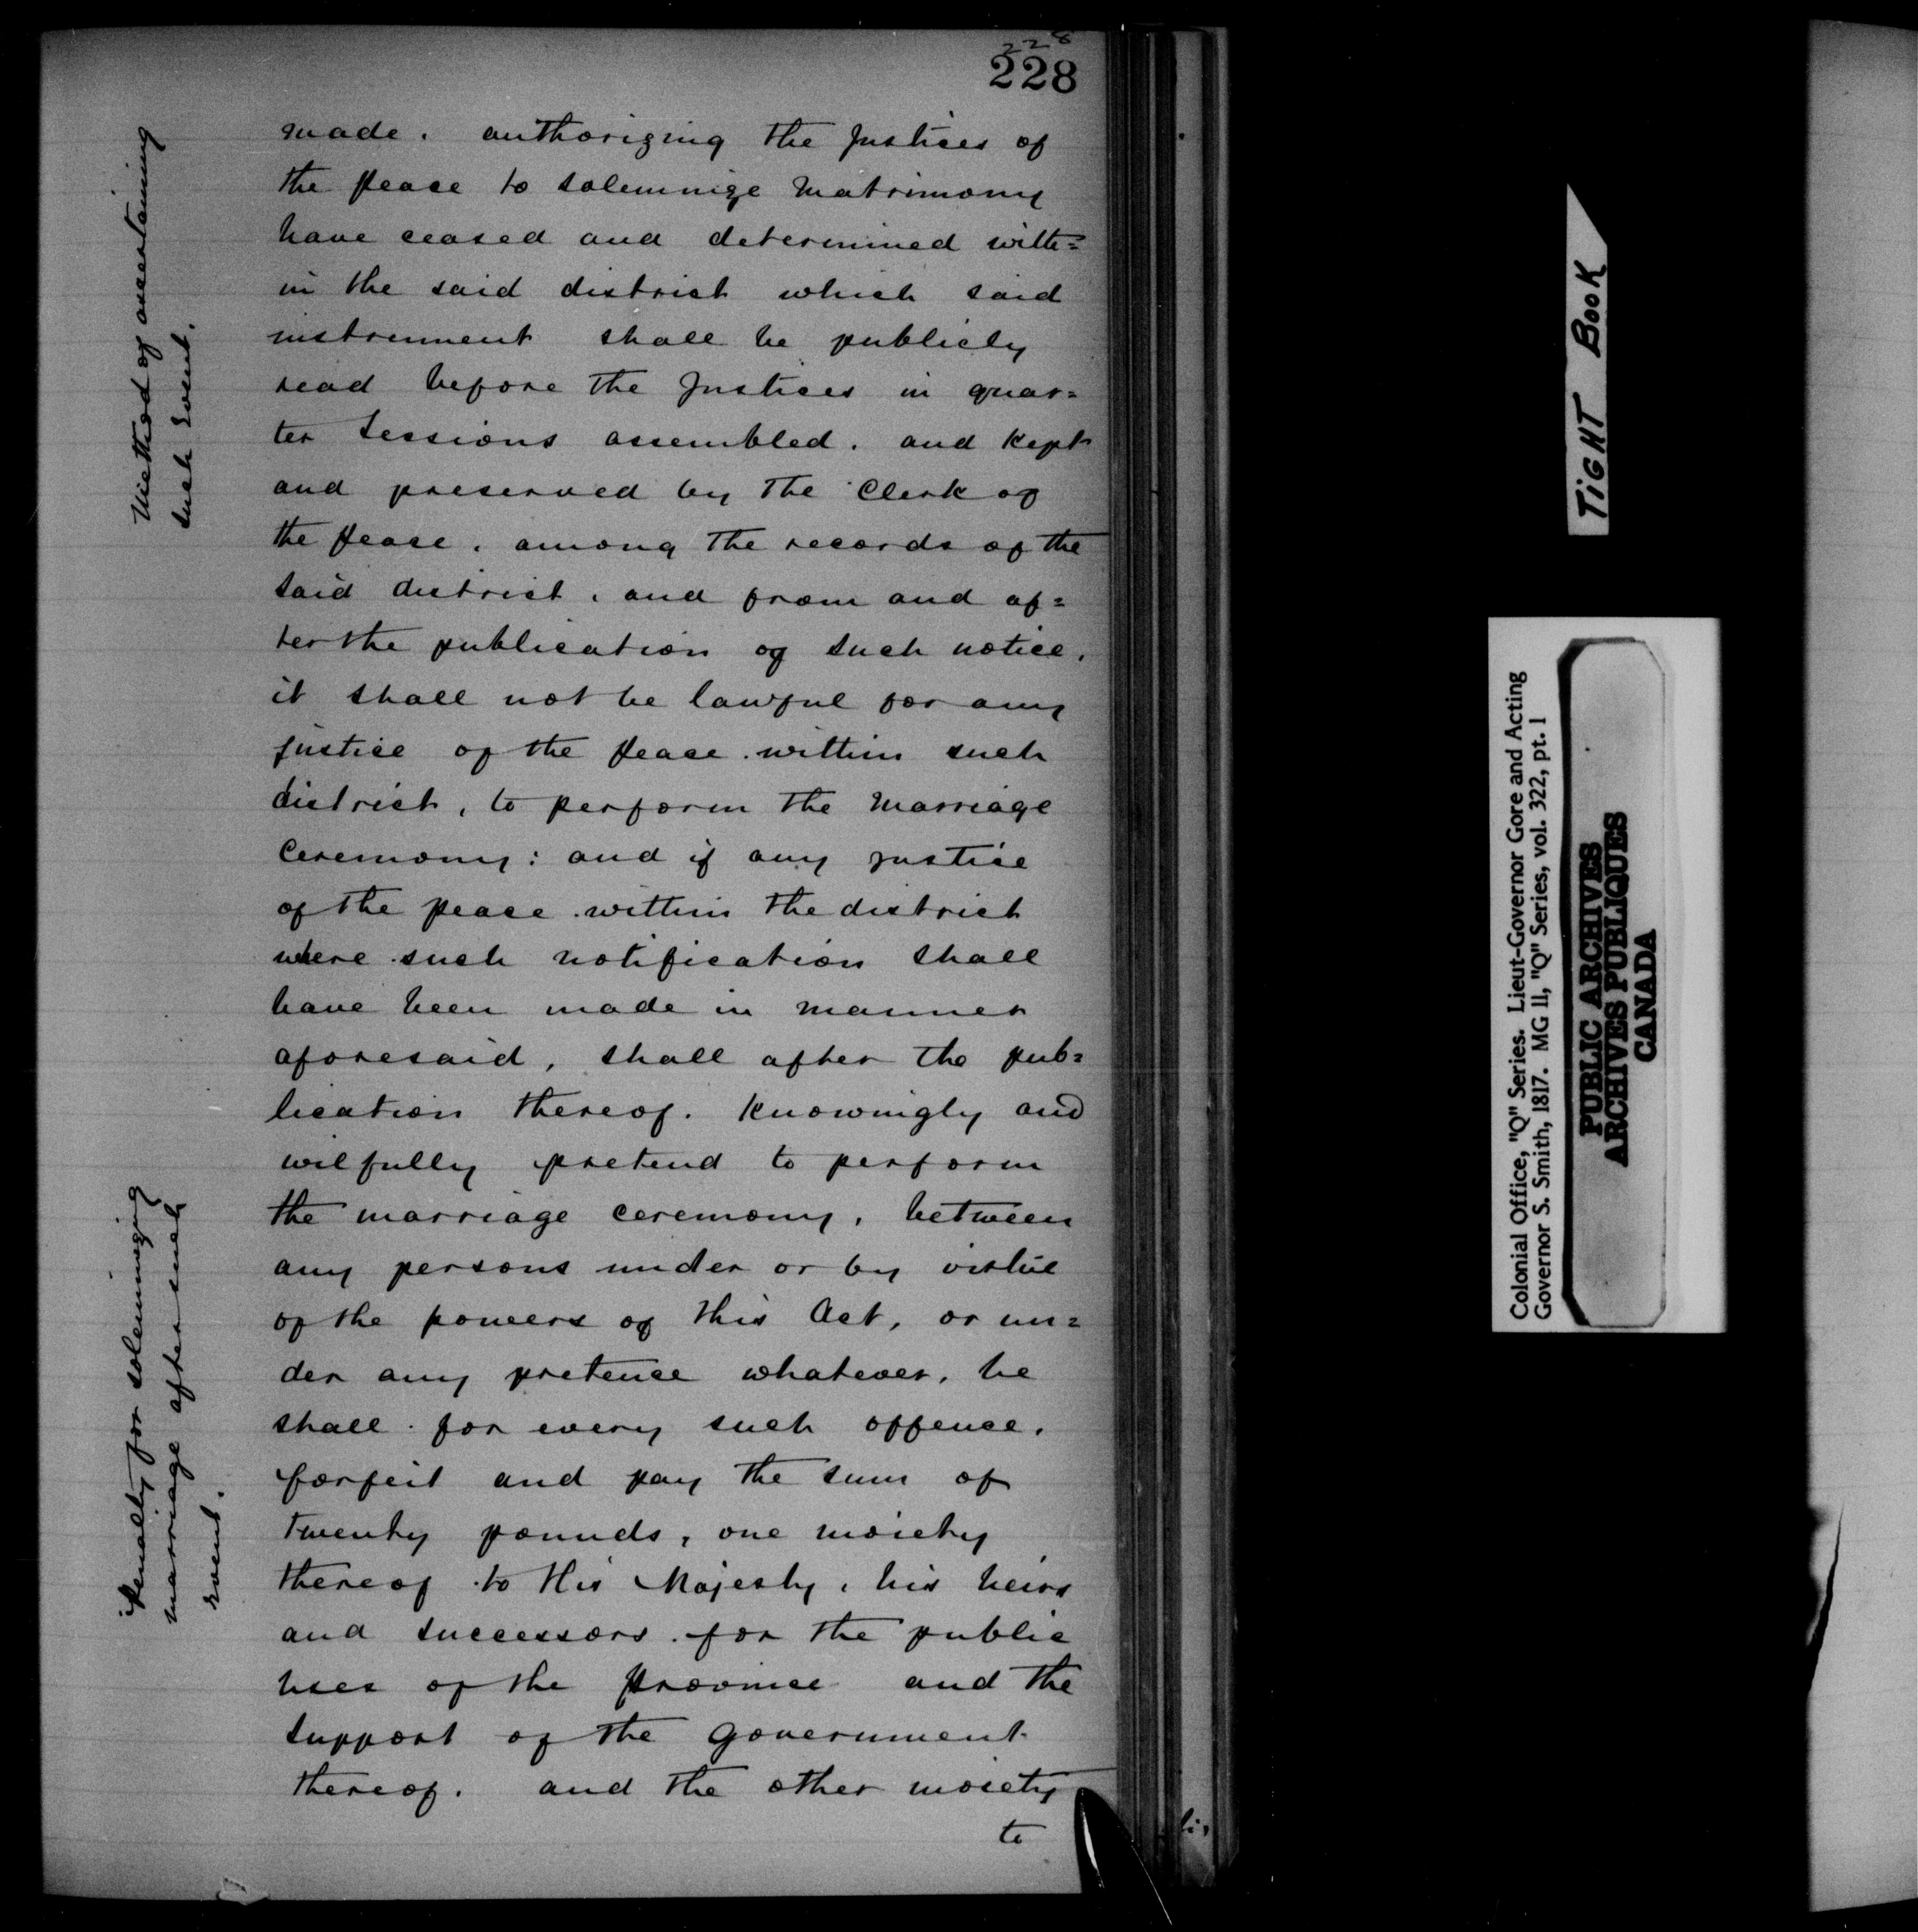 228
228
made, authorizing the Justices of
the peace to solemnize Matrimony
have ceased and determined with=
in the said district which said
instrument shall be publicly
read before the Justices in quar=
ter Sessions assembled, and kept
and preserved by the Clerk of
the peace, among the records of the
said district, and from and af=
ter the publication of such notice,
it shall not be lawful for any
justice of the peace within such
district, to perform the Marriage
Ceremony: and if any justice
of the peace within the district
where such notification shall
have been made in manner
aforesaid, shall after the pub=
lication thereof, knowingly and
wilfully pretend to perform
the marriage ceremony, between
any persons under or by virtue
of the powers of this Act, or un=
der any pretence whatever, he
shall for every such offence,
forfeit and pay the sum of
twenty pounds, one moiety
thereof to His Majesty, his heirs
and successors for the public
uses of the Province and the
support of the Government
thereof, and the other moiety
to
Method of ascertaining
such Event.
Penalty for solemnizing
marriage after such
Event.
TIGHT BOOK
Colonial Office, "Q" Series. Lieut-Governor Gore and Acting
Governor S. Smith, 1817. MG 11, "Q" Series, vol. 322, pt. 1
PUBLIC ARCHIVES
ARCHIVES PUBLIQUES
CANADA